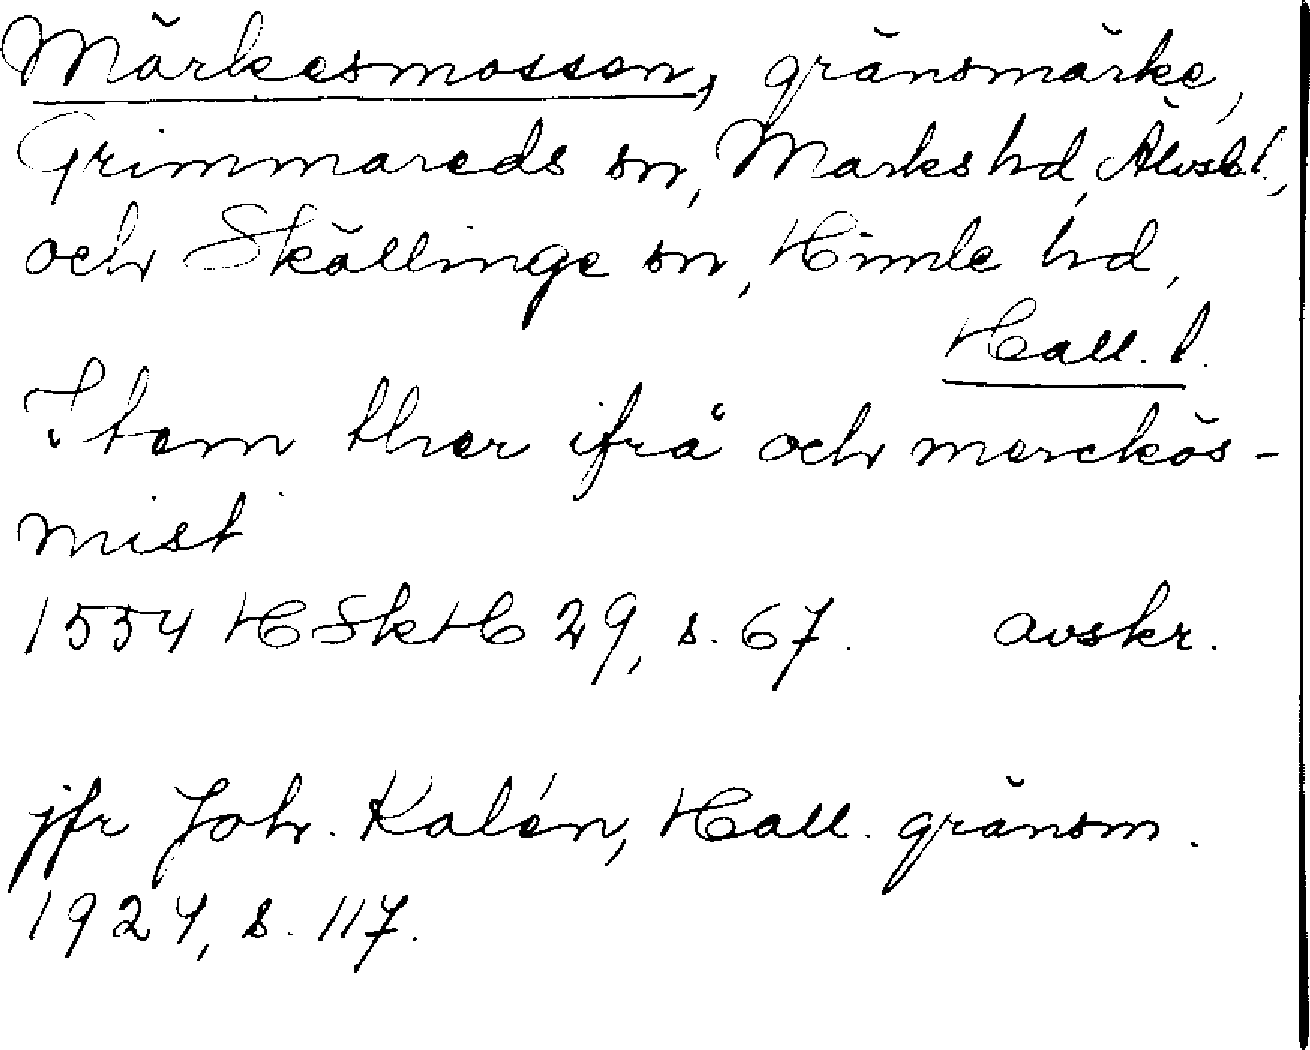 Märkesmossen, gränsmärke,
Grimmareds sn, Marks hd, Älvsb. l.,
och Skällinge sn, Himle hd,
Hall. l.
Item ther ifrå och merckös-
mist
1554 HSkH 29, s. 67. avskr.
jfr Joh. Kalén, Hall. gränsm.
1924, s. 117.